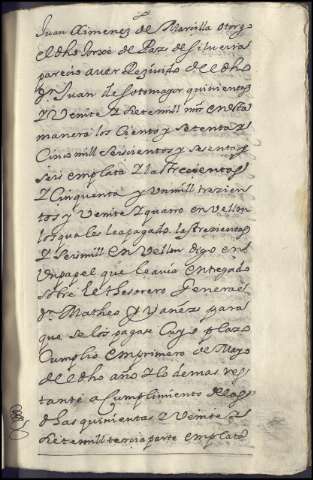 Juan Ximenez de Murillo otorgo
el dho Jorxe de Paz de Silveira
parecio aver Resçiuido del dho
Dn Juan de Sotomayor quinientos
y Veinte y siete mill mrs en esta
manera los Ciento y setenta y
Cinco mill seiscientos y sesenta y
seis en plata y las trecientas
y Cinquenta y un mill trezien
tos y Veinte y quatro en vellon
los quales lea pagado las trecientas
y seis mill en Vellon digo en
Un papel que le auia entregado
sobre el thesorero General
Dn Matheo Yvañez para
que se los pagase Cuyo plazo
Cumplio en primero de Mayo
del dho año y lo demas res
tante a Cumplimiento de las
dhas quinientas y Veinte y
siete mill tercia parte en plata